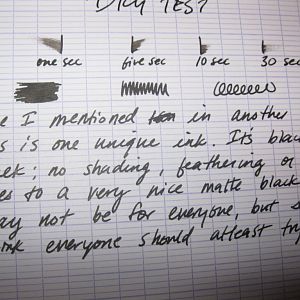 DRY TEST
one sec five sec 10 sec 30 sec
I mentioned in another
is one unique ink. It's black
no shading, feathering or
to a very nice matte black
not be for everyone, but
everyone should atleast try